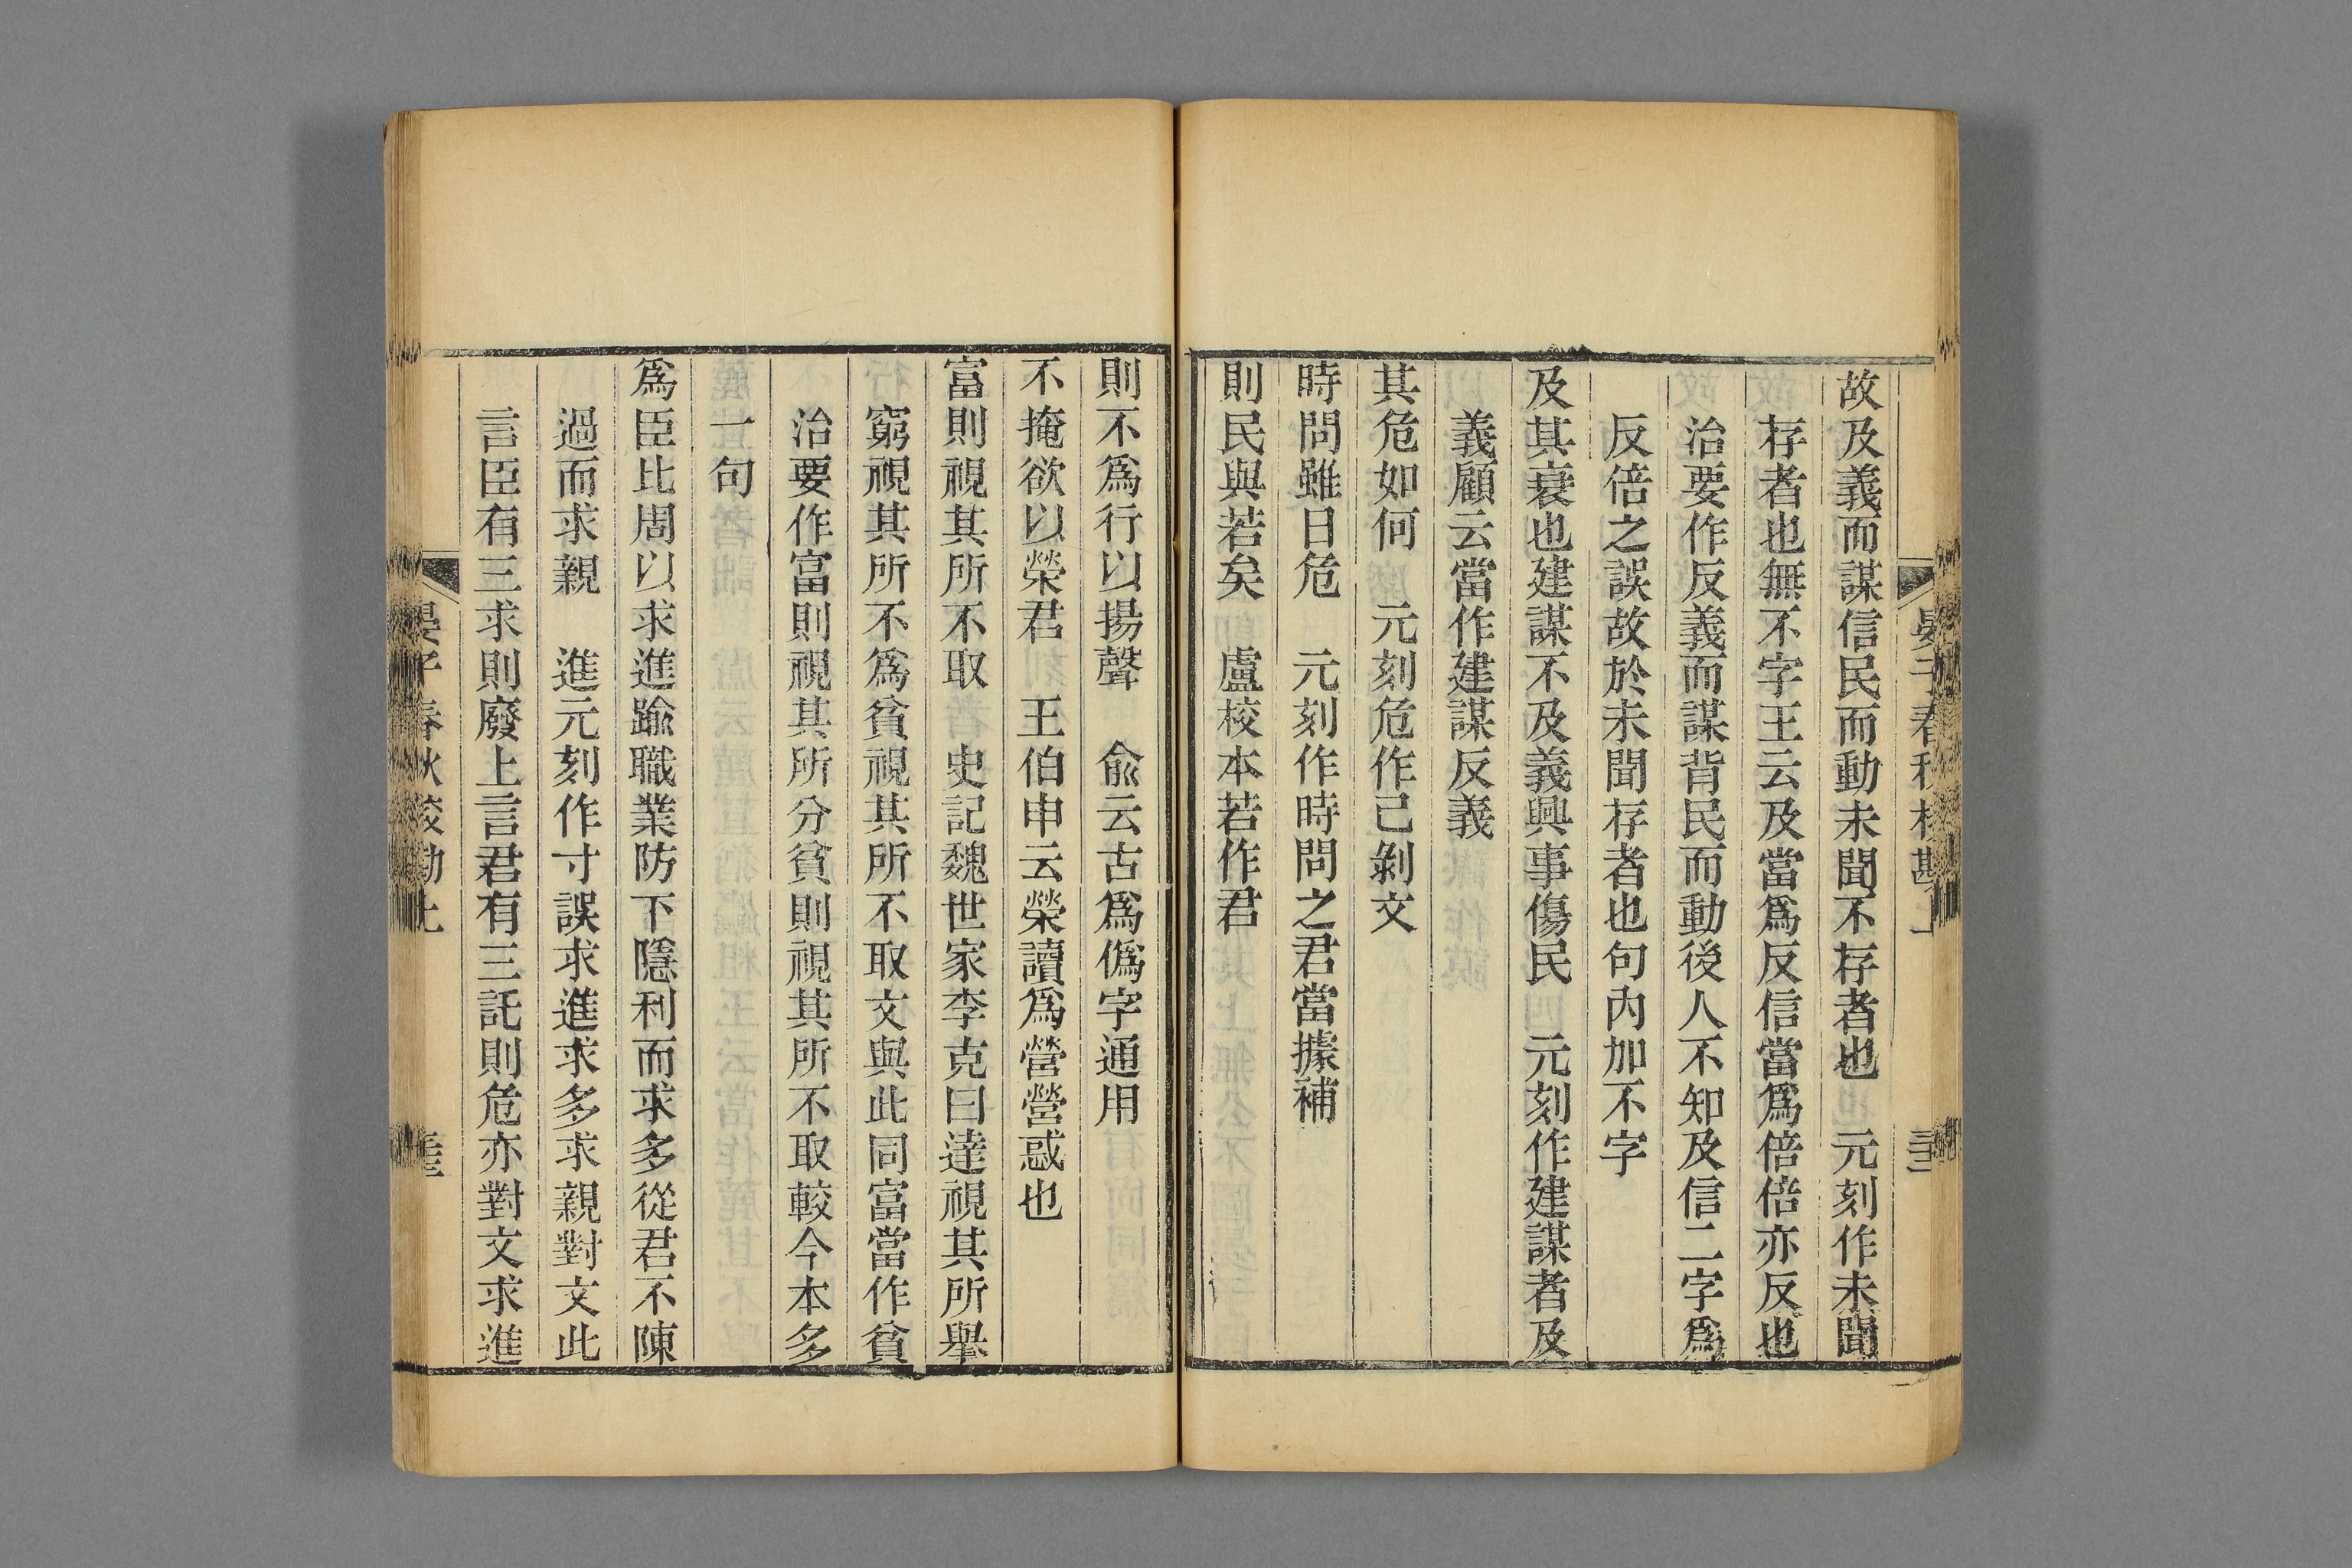 故及義而謀信民而動未聞不存者也 元刻作未聞
存者也無不字王云及當爲反信當爲倍倍亦反也
治要作反義而謀背民而動後人不知及信二字爲
反倍之誤故於未聞存者也句内加不字
及其衰也建謀不及義興事傷民 元刻作建謀者及
義顧云當作建謀反義
其危如何 元刻危作己剝文
時問雖日危 元刻作時問之君當據補
則民與若矣 盧校本若作君
則不爲行以揚聲 俞云古爲僞字通用
不掩欲以榮君 王伯申云榮讀爲營營惑也
富則視其所不取 史記魏世家李克曰達視其所舉
窮視其所不爲貧視其所不取文與此同富當作貧
治要作富則視其所分貧則視其所不取較今本多
一句
爲臣比周以求進踰職業防下隱利而求多從君不陳
過而求親 進元刻作寸誤求進求多求親對文此
言臣有三求則廢上言君有三託則危亦對文求進
晏子春秋校勘上